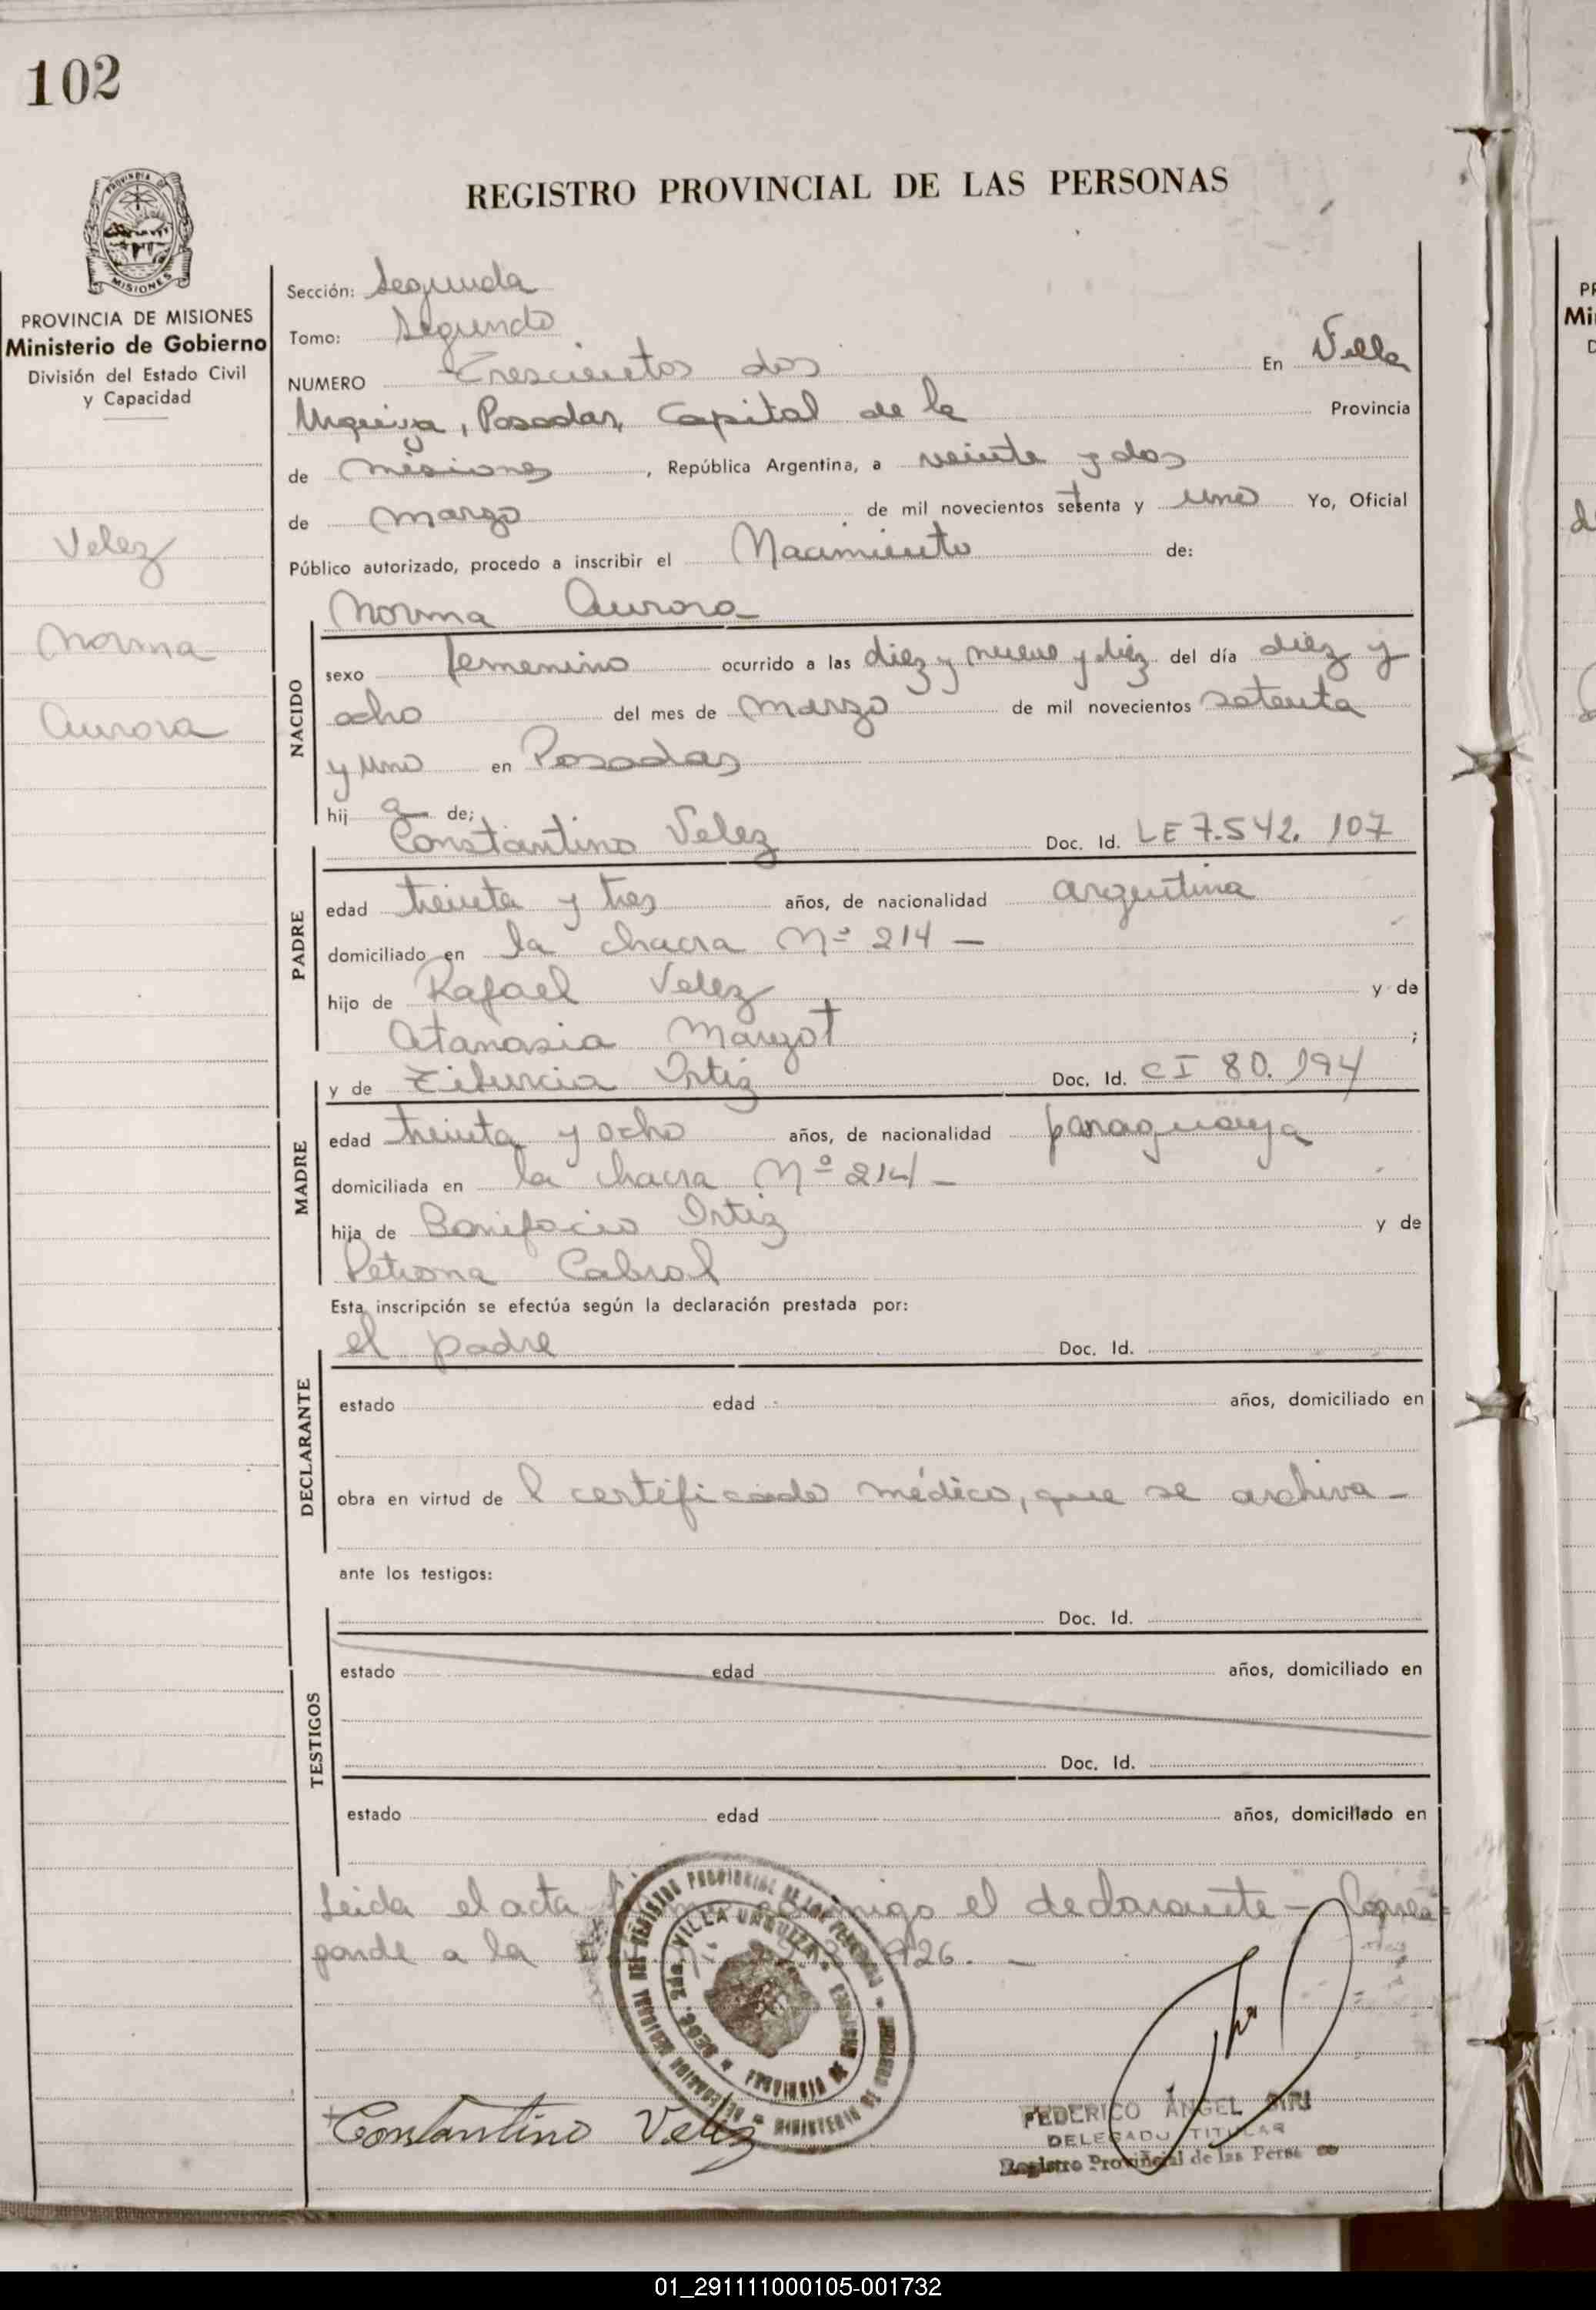 102
REGISTRO PROVINCIAL DE LAS PERSONAS
PROVINCIA DE MISIONES
Ministerio de Gobierno
División del Estado Civil
y Capacidad
Velez
Norma
Aurora
Sección: Segunda
Tomo: Segundo
NUMERO Trescientos dos En Villa
Urquiza, Posadas, Capital de la Provincia
de Misiones, República Argentina, a veinte y dos
de Marzo de mil novecientos setenta y uno Yo, Oficial
Público autorizado, procedo a inscribir el Nacimiento de:
Norma Aurora
NACIDO
sexo femenino ocurrido a las diez y nueve y diez del día diez y
ocho del mes de Marzo de mil novecientos setenta
y uno en Posadas
hij a de;
Constantino Velez Doc. Id. LE 7.542.107
PADRE
edad treinta y tres años, de nacionalidad argentina
domiciliado en la chacra Nº 214 -
hijo de Rafael Velez y de
Atanasia Marezot ;
y de Tiburcia Ortiz Doc. Id. CI 80.194
MADRE
edad treinta y ocho años, de nacionalidad paraguaya
domiciliada en la chacra Nº 214 -
hija de Bonifacio Ortiz y de
Petrona Cabral
Esta inscripción se efectúa según la declaración prestada por:
el padre Doc. Id.
DECLARANTE
estado edad años, domiciliado en
obra en virtud de l certificado médico, que se archiva -
ante los testigos:
Doc. Id.
TESTIGOS
estado edad años, domiciliado en
Doc. Id.
estado edad años, domiciliado en
Leida el acta conmigo el declarante - Corres
ponde a la 926. -
VILLA URQUIZA
PROVINCIA DE
Constantino Velez
FEDERICO ÁNGEL SIRI
DELEGADO TITULAR
Registro Provincial de las Perso
01_291111000105-001732